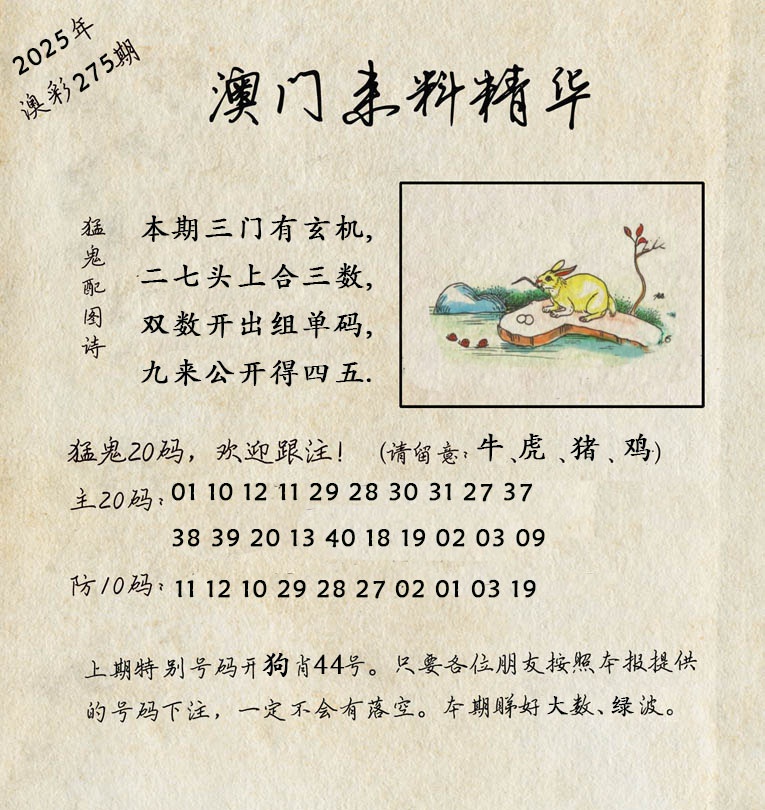 2025年
澳彩275期
澳门来料精华
猛鬼配图诗
本期三门有玄机,
二七头上合三数,
双数开出组单码,
九来公开得四五.
猛鬼20码，欢迎跟注！ (请留意: 牛、虎、猪、鸡)
主20码: 01 10 12 11 29 28 30 31 27 37
38 39 20 13 40 18 19 02 03 09
防10码: 11 12 10 29 28 27 02 01 03 19
上期特别号码开狗肖44号。只要各位朋友按照本报提供
的号码下注，一定不会有落空。本期睇好大数、绿波。